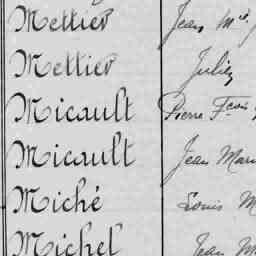 Mettier Jean Mie
Mettier Julien
Micault Pierre Fcois
Micault Jean Marie
Miché Louis M
Michel Jean M